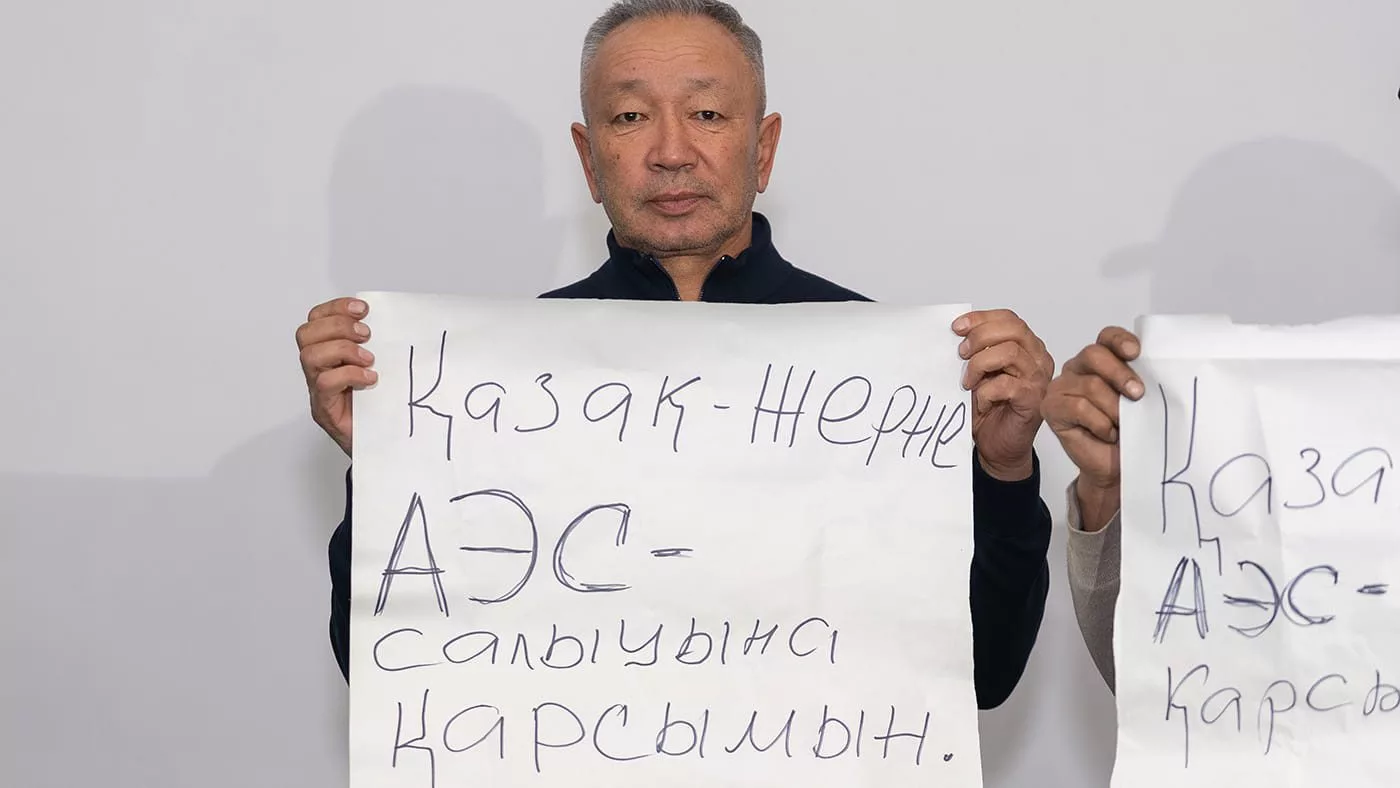 Қазақ-Жерне
АЭС-
салыуына
Қарсымын.
Қаза
АЭС-
Қарсы